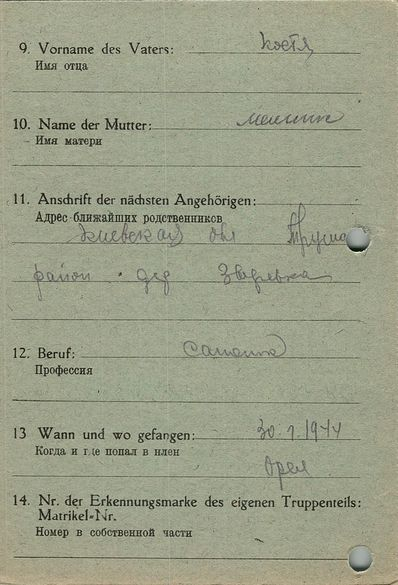 9. Vorname des Vaters: Костя
Имя отца
10. Name der Mutter:
Имя матери
11. Anschrift der nächsten Angehörigen:
Адрес ближайших родственников
Киевская обл
район дер
12. Beruf:
Профессия
13 Wann und wo gefangen: 30.7.1944
Когда и где попал в плен
Орел
14. Nr. der Erkennungsmarke des eigenen Truppenteils:
Matrikel-Nr.
Номер в собственной части